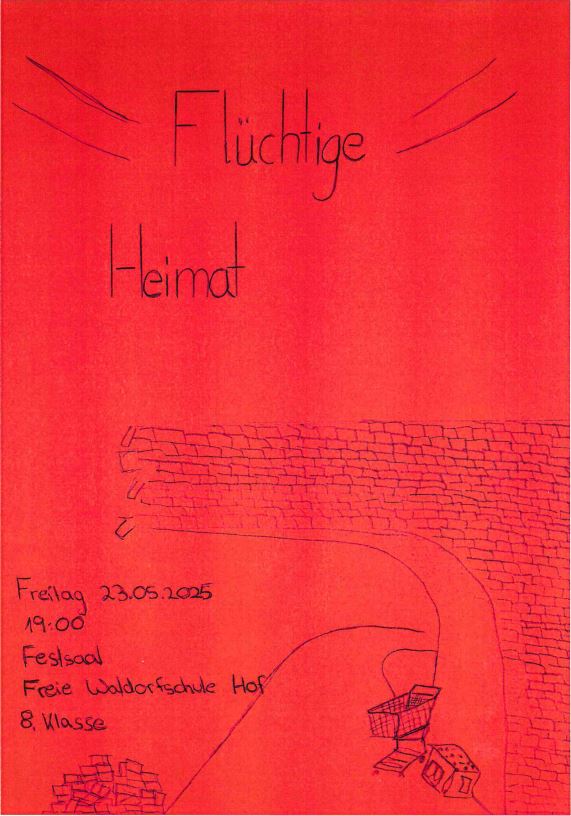 Flüchtige
Heimat
Freitag 23.05.2025
19:00
Festsaal
Freie Waldorfschule Hof
8. Klasse